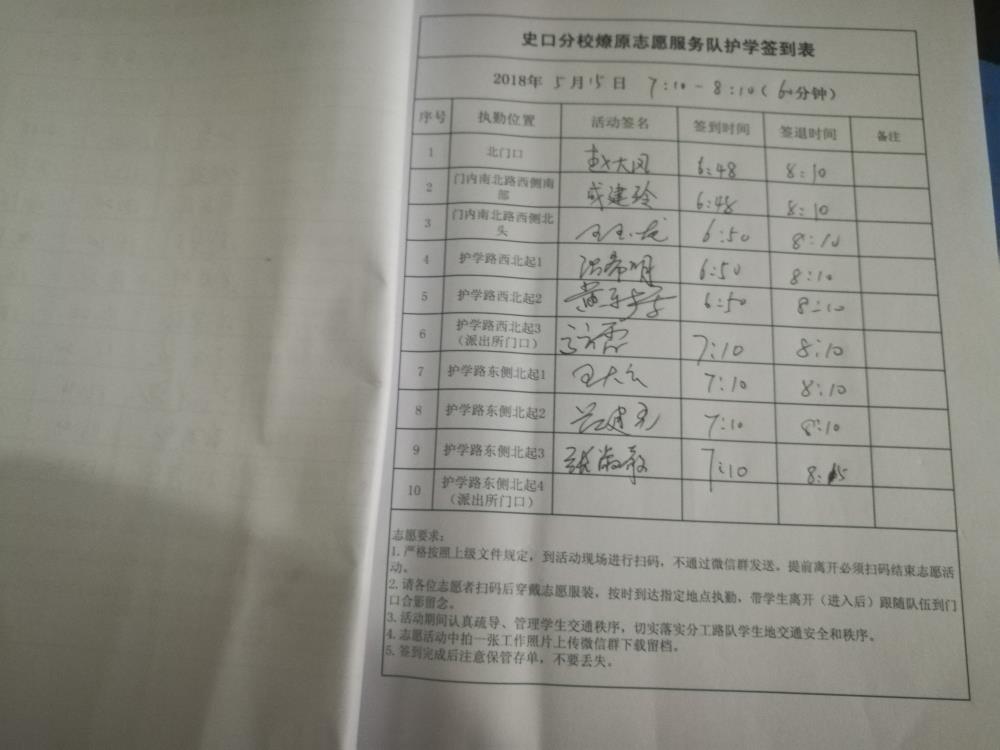 史口分校燎原志愿服务队护学签到表
2018年 5月15日 7:10-8:10(60分钟)
序号 执勤位置 活动签名 签到时间 签退时间 备注
1 北门口 赵大凤 6:48 8:10
2 门内南北路西侧南部 成建玲 6:48 8:10
3 门内南北路西侧北头 6:50 8:10
4 护学路西北起1 6:50 8:10
5 护学路西北起2 6:50 8:10
6 护学路西北起3(派出所门口) 7:10 8:10
7 护学路东侧北起1 7:10 8:10
8 护学路东侧北起2 7:10 8:10
9 护学路东侧北起3 7:10
10 护学路东侧北起4(派出所门口)
志愿要求:
1.严格按照上级文件规定,到活动现场进行扫码,不通过微信群发送。提前离开必须扫码结束志愿活
动。
2.请各位志愿者扫码后穿戴志愿服装,按时到达指定地点执勤,带学生离开(进入后)跟随队伍到门
口合影留念。
3.活动期间认真疏导、管理学生交通秩序,切实落实分工路队学生地交通安全和秩序。
4.志愿活动中拍一张工作照片上传微信群下载留档。
5.签到完成后注意保管存单,不要丢失。